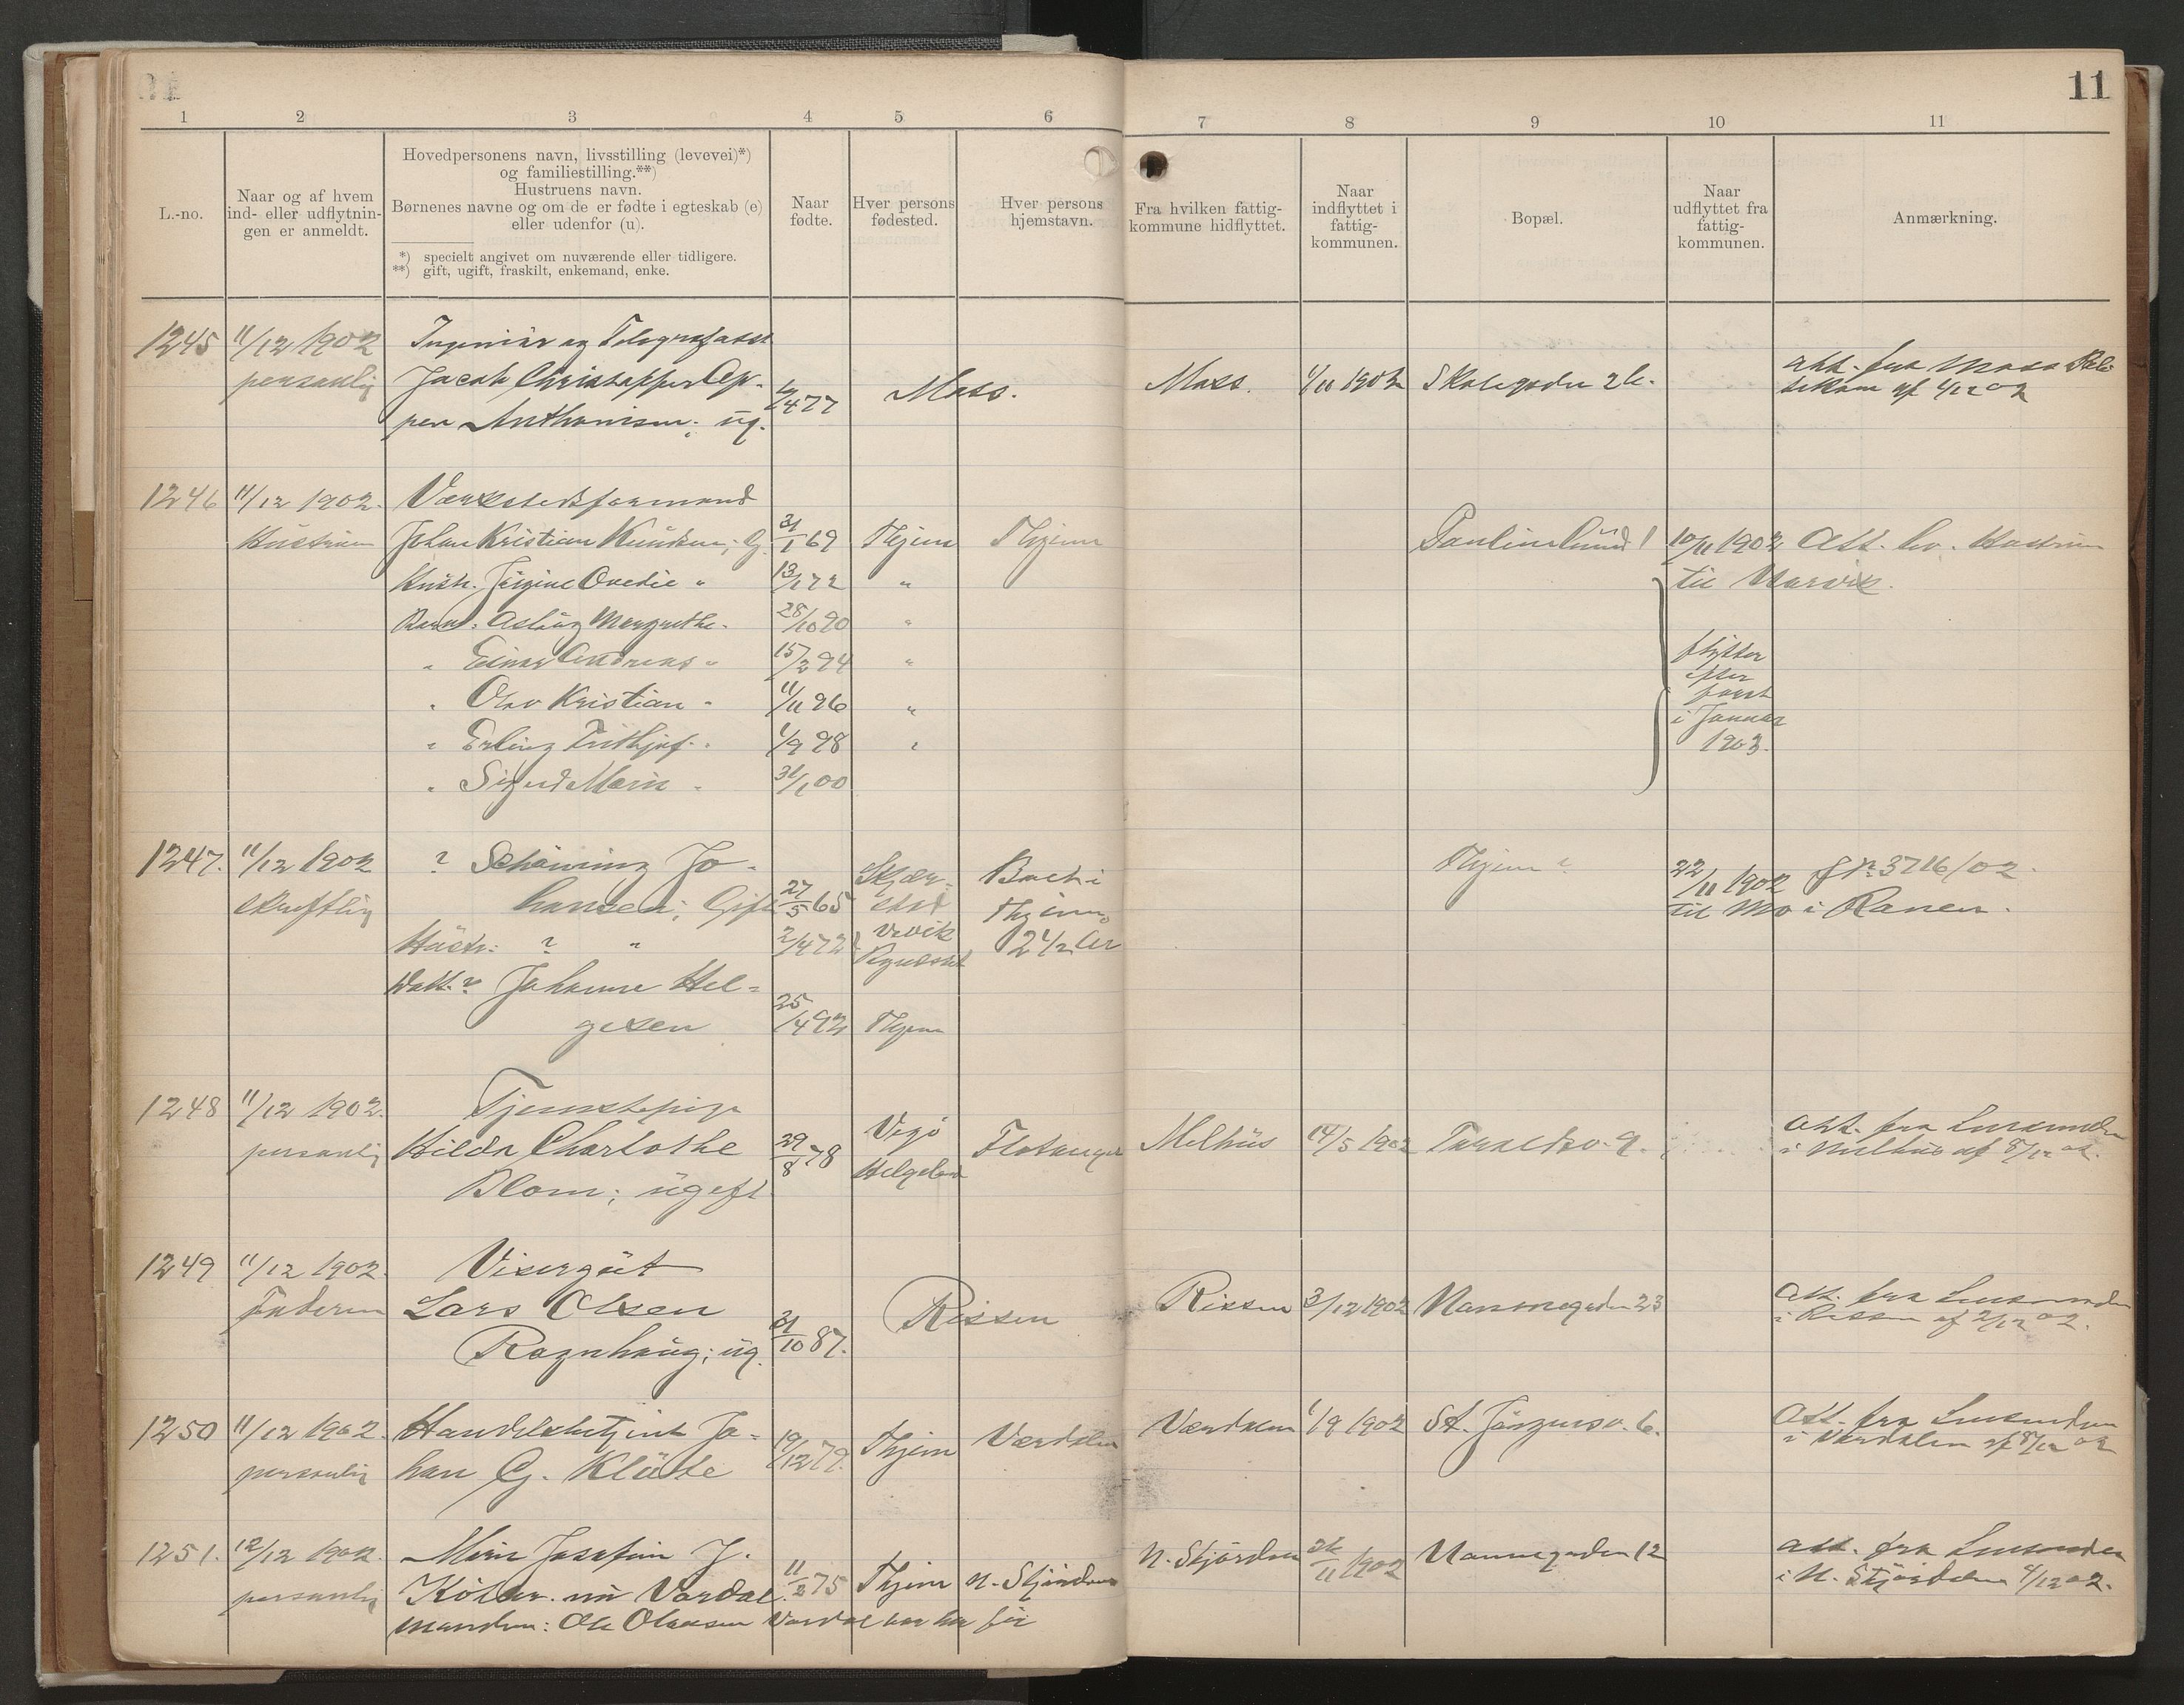 11
1 2 3 4 5 6 7 8 9 10 11
L.-no.
Naar og af hvem
ind- eller udflytnin-
gen er anmeldt.
Hovedpersonens navn, livsstilling (levevei)*)
og familiestilling.**)
Hustruens navn.
Børnenes navne og om de er fødte i egteskab (e)
eller udenfor (u).
*) specielt angivet om nuværende eller tidligere.
**) gift, ugift, fraskilt, enkemand, enke.
Naar
fødte.
Hver persons
fødested.
Hver persons
hjemstavn.
Fra hvilken fattig-
kommune hidflyttet.
Naar
indflyttet i
fattig-
kommunen.
Bopæl.
Naar
udflyttet fra
fattig-
kommunen.
Anmærkning.
1245 11/12 1902 Ingeniør og Telegrafasst
personlig Jacob Christopher Moss. Moss. 1902 att. fra Moss
Anthonisen; ug. 477
1246 11/12 1902. Værkstedsformand
Hustruen Johan Kristian Knudsen; G. 31/1 69 Thjem Thjem 10/11 1902 Att. lev. Hustruen
Hustr. Ovedie " 13/1 72 " til Narvik.
Barn: Aslaug Margrethe. 28/10 90 "
" Einar Andreas " 15/2 94 " flytter
efter
" Olav Kristian " 11/11 96 " først
i Januar
" Erling Frithjof " 1/9 98 " 1903.
" Sigurd " 31/1 00
1247. 11/12 1902 ? Schåning Jo- Thjem ? 22/11 1902 3716/02.
skriftlig hansen; Gift 27/5 65 Thjem til Mo i Ranen.
Hustr: ? " 2/4 72 2 1/2 Aar
Datt. ? Johanne Hel-
gesen 25/4 92 Thjem
1248 11/12 1902. Tjenestepige
personlig Hilda Charlothe 29/8 78 Vegø Melhus 14/5 1902 att. fra Lensmanden
Blom; ugift Helgeland i Melhus af 8/12 02.
1249 11/12 1902. Visergut
Faderen Lars Olsen Rissen Rissen 3/12 1902 Nannegaden 23 Att. fra Lensmanden
Ragnhaug; ug. 31/10 87. i Rissen af 2/12 02.
1250 11/12 1902. Handelsbetjent Jo- 19/12 79. Thjem Værdalen Værdalen 1/9 1902 St. Jørgensv. 6. Att. fra Lensmanden
personlig han G. Klüwe i Værdalen af 8/12 02
1251. 12/12 1902. Josefine J. 11/2 75 Thjem N. Stjørdalen N. Stjørdalen 26/11 1902 Nannegaden 12 att. fra Lensmanden
personlig Vardal i N. Stjørdalen
manden: Ole Olausen Vardal bor her før